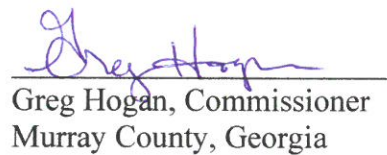 Greg Hogan
Greg Hogan, Commissioner
Murray County, Georgia